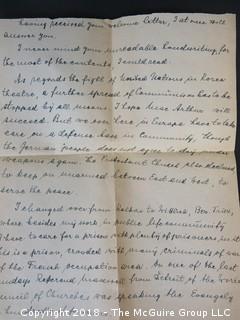 Having received your welcome letter, I at once will
answer you.
I never mind your unreadable handwriting, for
the most of the contents I could read.
As regards the fight of United Nations in Korea
theatre, a further spread of Communism has to be
stopped by all means. I hope Mac Arthur will
succeed. But we over here in Europe, have to take
care on a defence basis in Community, though
the German people does not agree to day
weapons again. The Protestant Churches also declared
to keep on unarmed between East and West, to
serve the peace.
I changed over from to Wittlich, Bez. Trier,
where besides my work in public life community
I have to care for a prison with plenty of prisoners in it.
It is a prison, crowded with many criminals of war
of the French occupation area. On one of the last
sundays Reverend from Detroit of the World
Council of Churches was speaking the Evangely
Copyright 2018 - The McGuire Group LLC